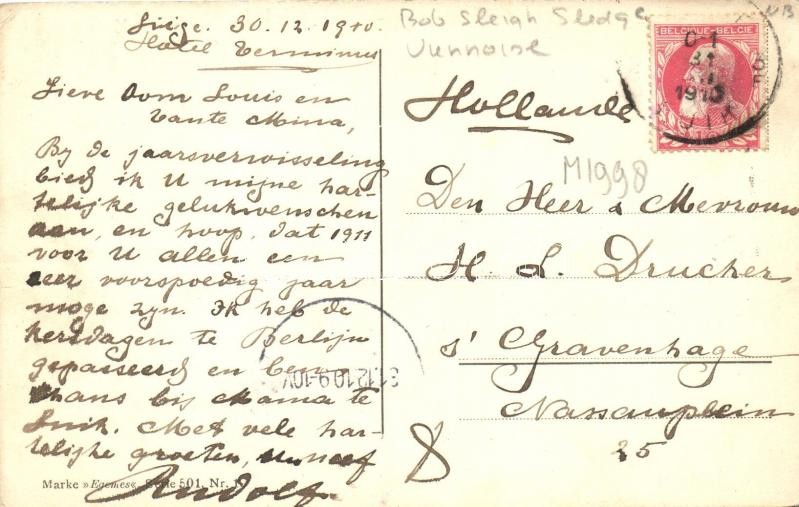 Luige. 30.12.1910.
Hotel Terminus
Lieve Oom Louis en
Tante Mina,
By de jaarsverwisseling
bied ik U mijne har-
telijke gelukwenschen
aan, en hoop, dat 1911
voor U allen een
zeer voorspoedig jaar
moge zyn. Ik heb de
kersdagen te Berlijn
gepasseerd en ben
thans bij Mama te
Luik. Met vele har-
telijke groeten, uw neef
Rudolf.
Marke »Egemes« Serie 501, Nr. 1
31.12.10.9-10V
Bob Sleigh Sledge
Viennoise
NB
BELGIQUE-BELGIË
Hollande
M1998
Den Heer & Mevrouw
H. L. Drucker
s' Gravenhage
Nassauplein
25